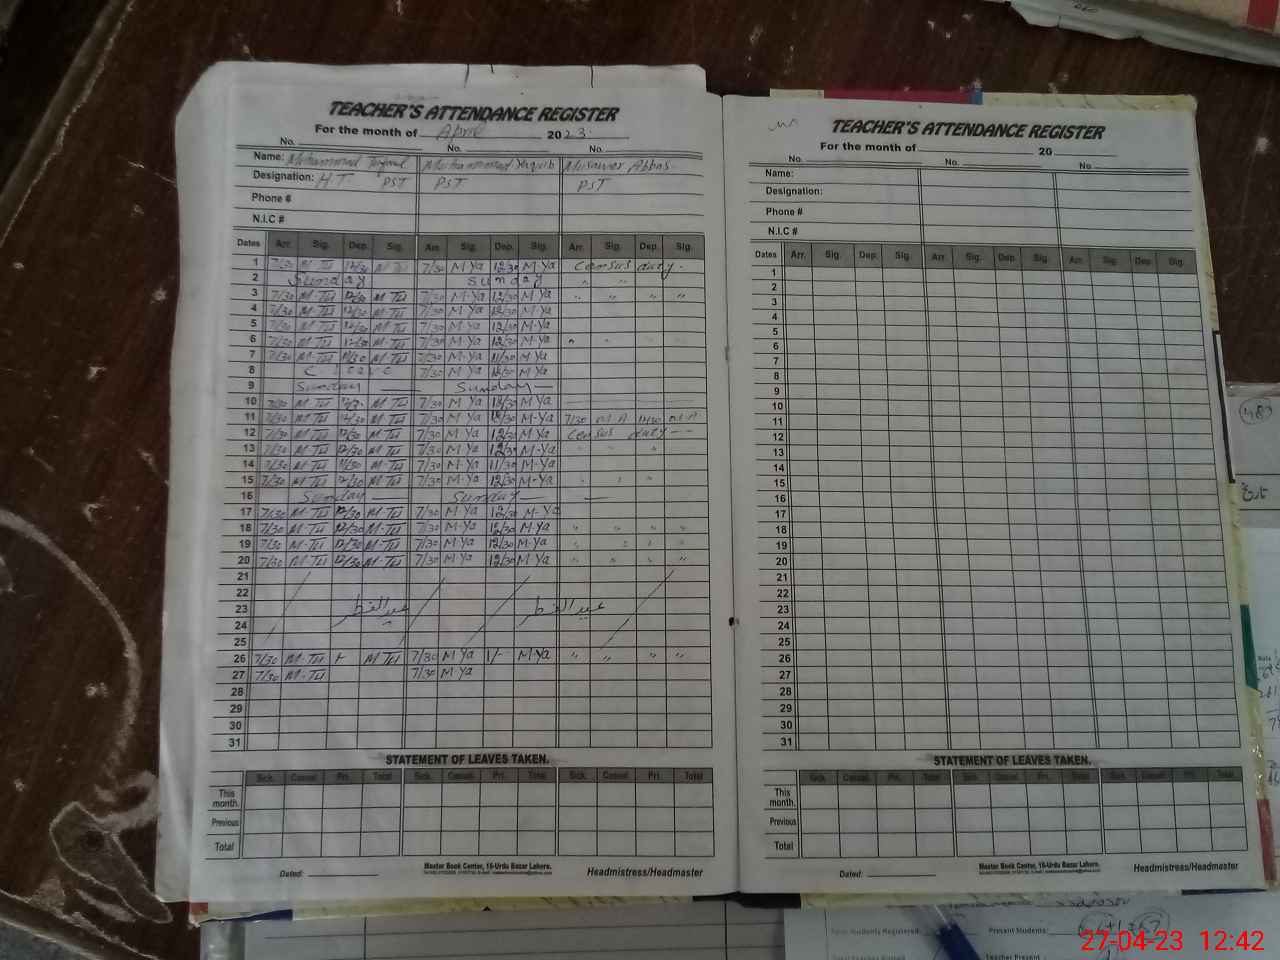 TEACHER'S ATTENDANCE REGISTER
For the month of April 2023
No. No. No.
Name: Mohammad Muhammad Yaqoob Musawer Abbas
Designation: H.T. PST PST PST
Phone #
N.I.C #
Dates Arr. Sig. Dep. Sig. Arr. Sig. Dep. Sig. Arr. Sig. Dep. Sig.
1 7/30 M-Tu 12/30 M-Tu 7/30 M-Ya 12/30 M-Ya Census duty
2 Sunday Sunday " "
3 7/30 M-Tu 12/30 M-Tu 7/30 M-Ya 12/30 M-Ya " " " "
4 7/30 M-Tu 12/30 M-Tu 7/30 M-Ya 12/30 M-Ya
5 7/30 M-Tu 12/30 M-Tu 7/30 M-Ya 12/30 M-Ya
6 7/30 M-Tu 12/30 M-Tu 7/30 M-Ya 12/30 M-Ya
7 7/30 M-Tu 11/30 M-Tu 7/30 M-Ya 11/30 M-Ya
8 7/30 M-Ya 12/30 M-Ya
9 Sunday Sunday
10 7/30 M-Tu 12/30 M-Tu 7/30 M-Ya 12/30 M-Ya
11 7/30 M-Tu 12/30 M-Tu 7/30 M-Ya 12/30 M-Ya 7/30 M.A 12/30 M.A
12 7/30 M-Tu 12/30 M-Tu 7/30 M-Ya 12/30 M-Ya Census duty
13 7/30 M-Tu 12/30 M-Tu 7/30 M-Ya 12/30 M-Ya " " "
14 7/30 M-Tu 11/30 M-Tu 7/30 M-Ya 11/30 M-Ya
15 7/30 M-Tu 12/30 M-Tu 7/30 M-Ya 12/30 M-Ya
16 Sunday Sunday
17 7/30 M-Tu 12/30 M-Tu 7/30 M-Ya 12/30 M-Ya
18 7/30 M-Tu 12/30 M-Tu 7/30 M-Ya 12/30 M-Ya " " " "
19 7/30 M-Tu 12/30 M-Tu 7/30 M-Ya 12/30 M-Ya " " " "
20 7/30 M-Tu 12/30 M-Tu 7/30 M-Ya 12/30 M-Ya " " " "
21
22
23 عید الفطر عید الفطر
24
25
26 7/30 M-Tu M-Tu 7/30 M-Ya 1/- M-Ya " " " "
27 7/30 M-Tu 7/30 M-Ya
28
29
30
31
STATEMENT OF LEAVES TAKEN.
Sick. Casual. Pri. Total Sick. Casual. Pri. Total Sick. Casual. Pri. Total
This month.
Previous
Total
Dated:
Master Book Center, 16-Urdu Bazar Lahore.
Headmistress/Headmaster
TEACHER'S ATTENDANCE REGISTER
For the month of 20
No. No. No.
Name:
Designation:
Phone #
N.I.C #
Dates Arr. Sig. Dep. Sig. Arr. Sig. Dep. Sig. Arr. Sig. Dep. Sig.
1
2
3
4
5
6
7
8
9
10
11
12
13
14
15
16
17
18
19
20
21
22
23
24
25
26
27
28
29
30
31
STATEMENT OF LEAVES TAKEN.
Sick. Casual. Pri. Total Sick. Casual. Pri. Total Sick. Casual. Pri. Total
This month.
Previous
Total
Dated:
Master Book Center, 16-Urdu Bazar Lahore.
Headmistress/Headmaster
Total Students Registered: Present Students:
Teacher Present
27-04-23 12:42